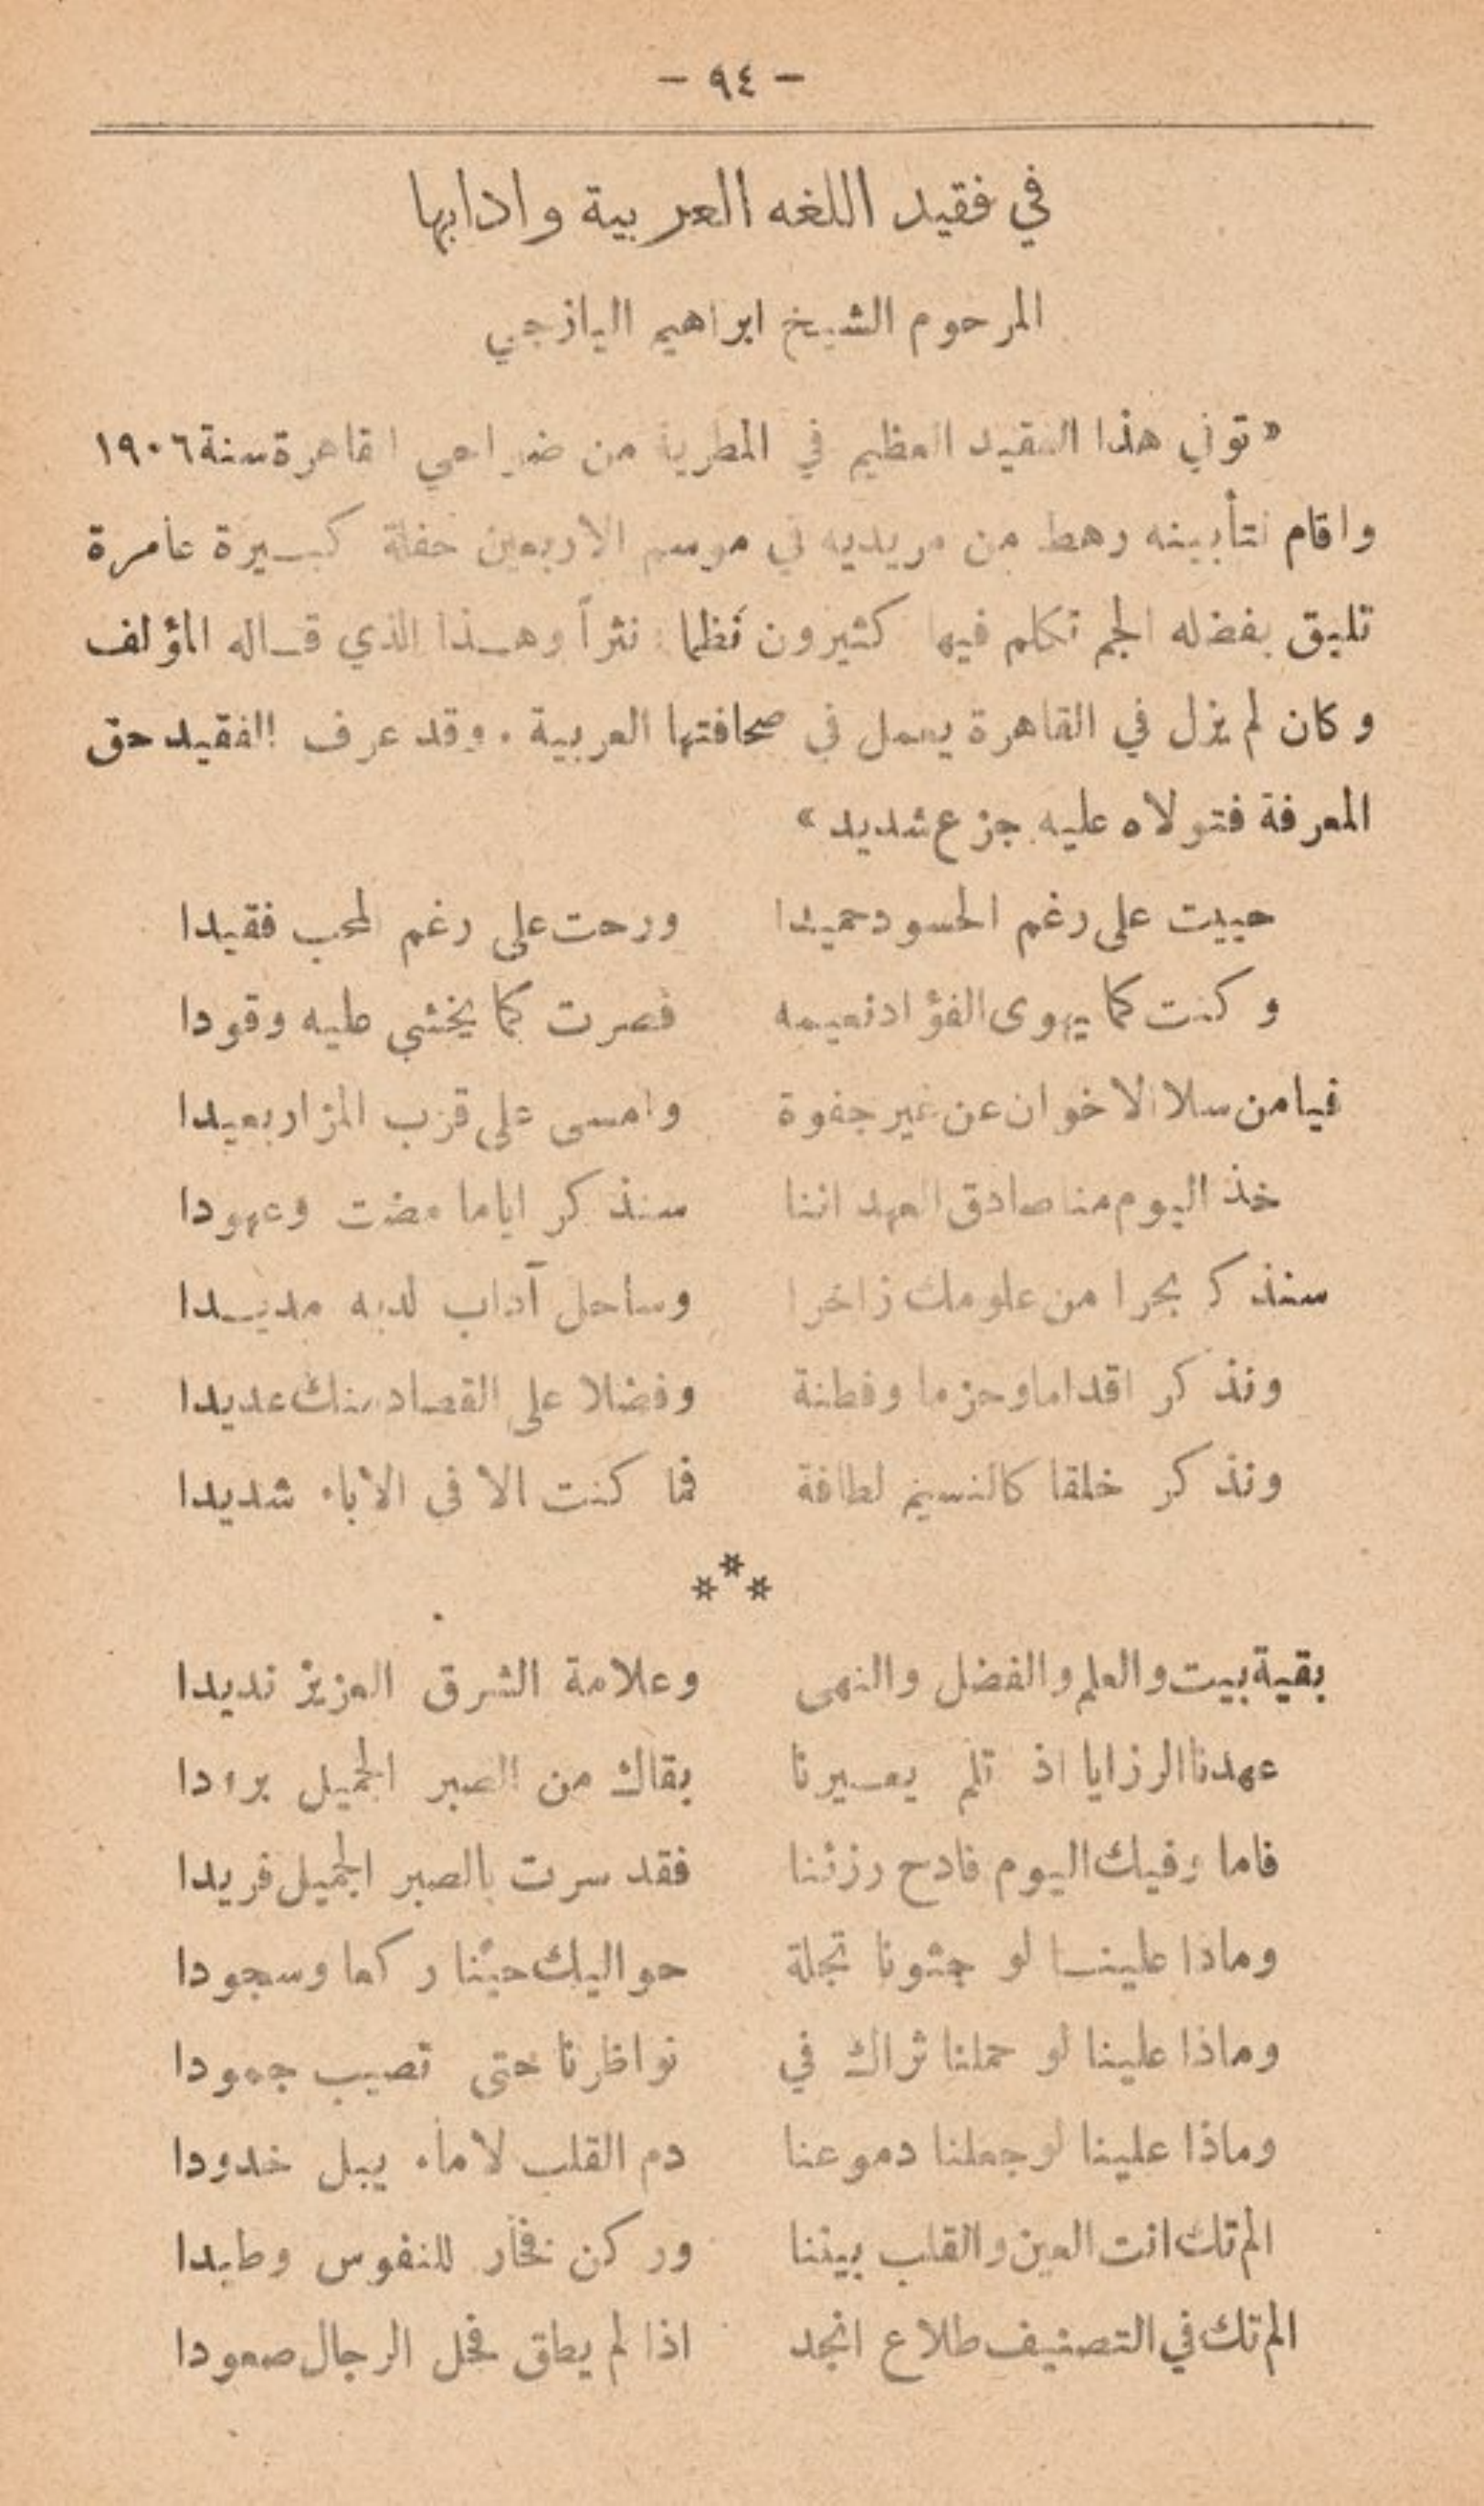 - ٩٤ -
في فقيد اللغه العربية وادابها
المرحوم الشيخ ابراهيم اليازجي
« توفي هذا الفقيد العظيم في المطرية من ضواحي القاهرة سنة ١٩٠٦
واقام لتأبينه رهط من مريديه في موسم الاربعين حفلة كبيرة عامرة
تليق بفضله الجم تكلم فيها كثيرون نظما نثراً وهذا الذي قاله المؤلف
وكان لم يزل في القاهرة يعمل في صحافتها العربية . وقد عرف الفقيد حق
المعرفة فتولاه عليه جزع شديد »
حييت على رغم الحسود حميدا ورحت على رغم المحب فقيدا
وكنت كما يهوى الفؤاد نعيمه فصرت كما يخشى عليه وقودا
فيا من سلا الاخوان عن غير جفوة وامسى على قرب المزار بعيدا
خذ اليوم منا صادق العهد اننا سنذكر اياما مضت وعهودا
سنذكر بحرا من علومك زاخرا وساحل آداب لديه مديدا
ونذكر اقداما وحزما وفطنة وفضلا على القصاد منك عديدا
ونذكر خلقا كالنسيم لطافة فما كنت الا في الاباء شديدا
***
بقية بيت والعلم والفضل والنهى وعلامة الشرق العزيز نديدا
عهدنا الرزايا اذ تلم يعيرنا بقاك من الصبر الجميل برودا
فاما وفيك اليوم فادح رزئنا فقد سرت بالصبر الجميل فريدا
وماذا علينا لو جثونا تجلة حواليك حينا ركعا وسجودا
وماذا علينا لو حملنا ثراك في نواظرنا حتى تصيب جمودا
وماذا علينا لو جعلنا دموعنا دم القلب لا ماء يبل خدودا
الم تك انت العين والقلب بيننا وركن فخار للنفوس وطيدا
الم تك في التصنيف طلاع انجد اذا لم يطق فحل الرجال صعودا